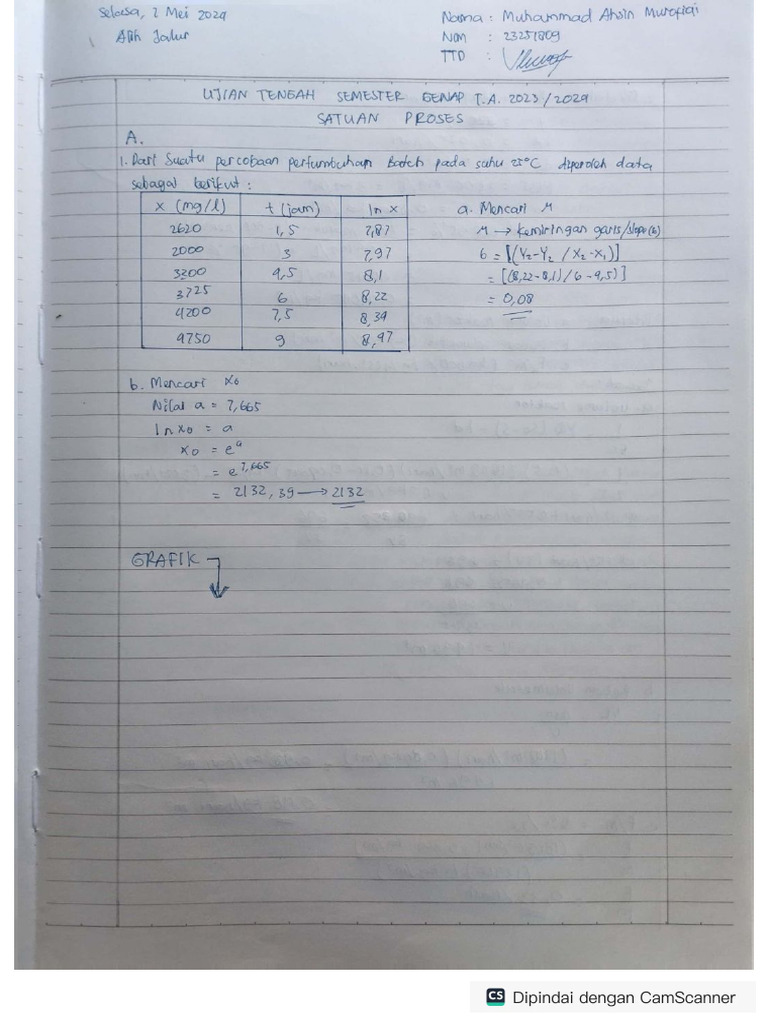 Selasa, 7 Mei 2024
Alih Jalur
Nama : Muhammad Ahsin Murofiqi
NOM : 23257809
TTD :
UJIAN TENGAH SEMESTER GENAP T.A. 2023/2024
SATUAN PROSES
A.
1. Dari Suatu percobaan pertumbuhan Batch pada suhu 25°C diperoleh data
sebagai berikut :
X (mg/l) t (jam) ln x
2620 1,5 7,87
2000 3 7,97
3200 4,5 8,1
3725 6 8,22
4200 7,5 8,34
4750 9 8,47
a. Mencari M
M → kemiringan garis/slope (b)
b = [(Y2-Y2 / X2-X1)]
= [(8,22-8,1)/6-4,5)]
= 0,08
b. Mencari X0
Nilai a = 7,665
ln x0 = a
x0 = e^a
= e^7,665
= 2132,39 → 2132
GRAFIK
CS Dipindai dengan CamScanner